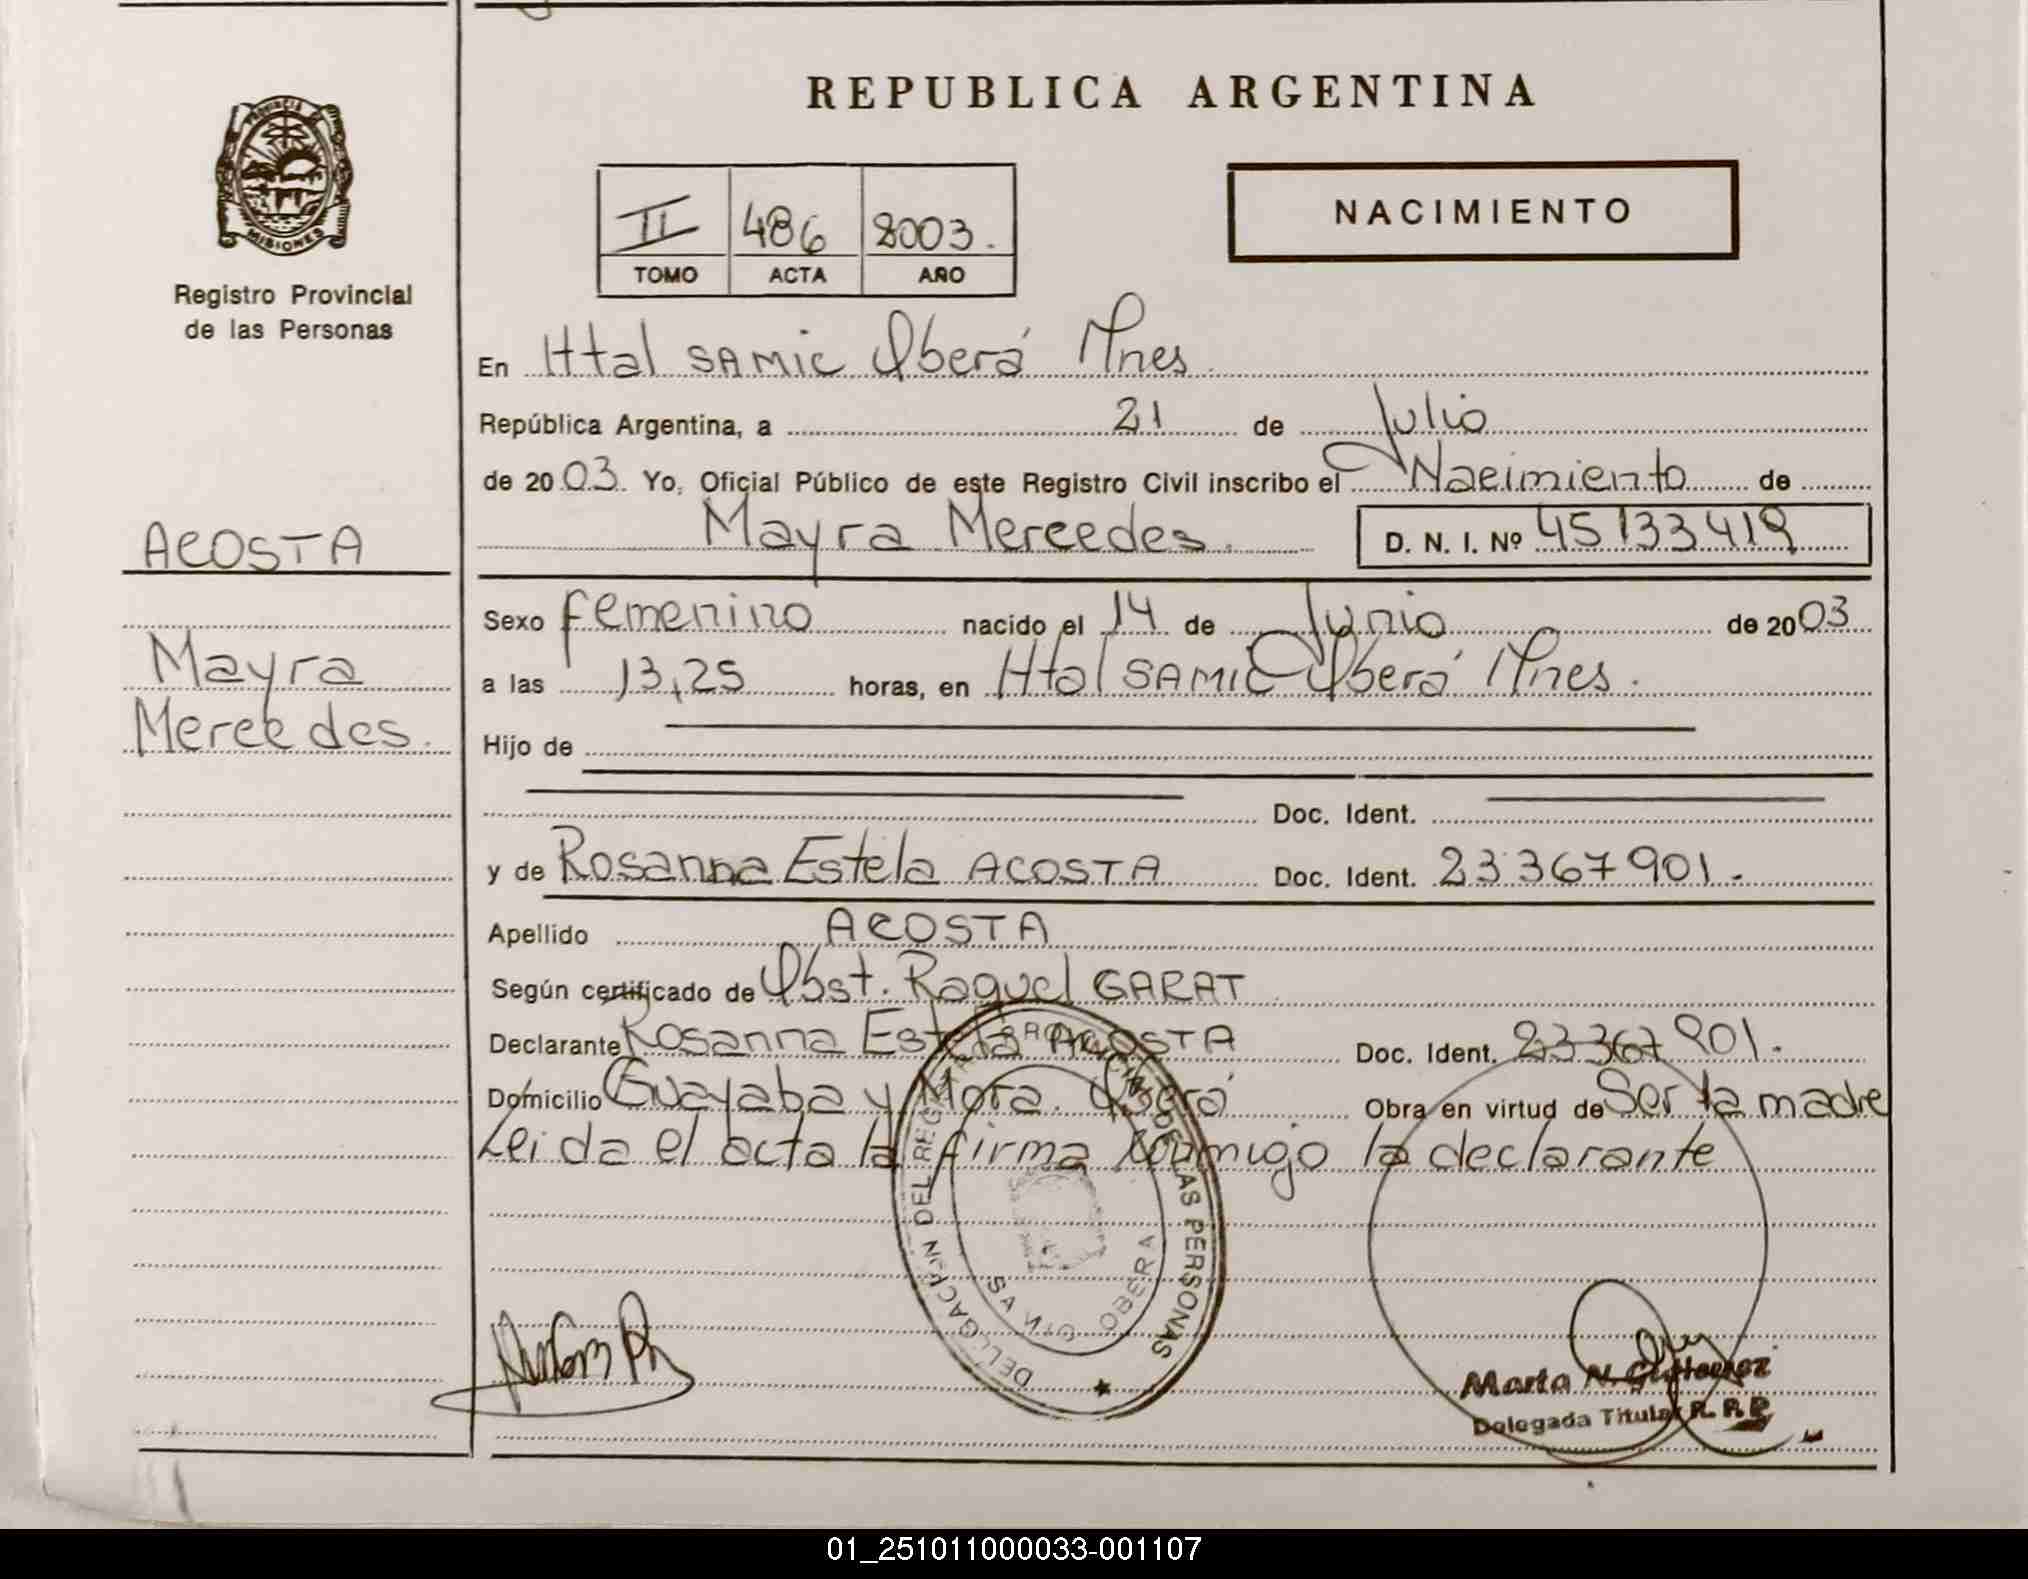 REPUBLICA ARGENTINA
PROVINCIA DE
MISIONES
Registro Provincial
de las Personas
II 486 2003.
TOMO ACTA AÑO
NACIMIENTO
En Htal SAMIC Oberá Mnes.
República Argentina, a 21 de Julio
de 2003. Yo, Oficial Público de este Registro Civil inscribo el Nacimiento de
Mayra Mercedes. D. N. I. Nº 45133419
ACOSTA
Mayra
Mercedes.
Sexo Femenino nacido el 14 de Junio de 2003
a las 13,25 horas, en Htal SAMIC Oberá Mnes.
Hijo de
Doc. Ident.
y de Rosanna Estela ACOSTA Doc. Ident. 23367901.
Apellido ACOSTA
Según certificado de Obst. Raquel GARAT
Declarante Rosanna Estela ACOSTA Doc. Ident. 23367901.
Domicilio Guayaba y Mora. Oberá Obra en virtud de Ser la madre
Leida el acta la firma conmigo la declarante
DELEGACION DEL REGISTRO PROVINCIAL DE LAS PERSONAS
OBERA
Marta N. Gutierrez
Delegada Titular R. P. P.
01_251011000033-001107